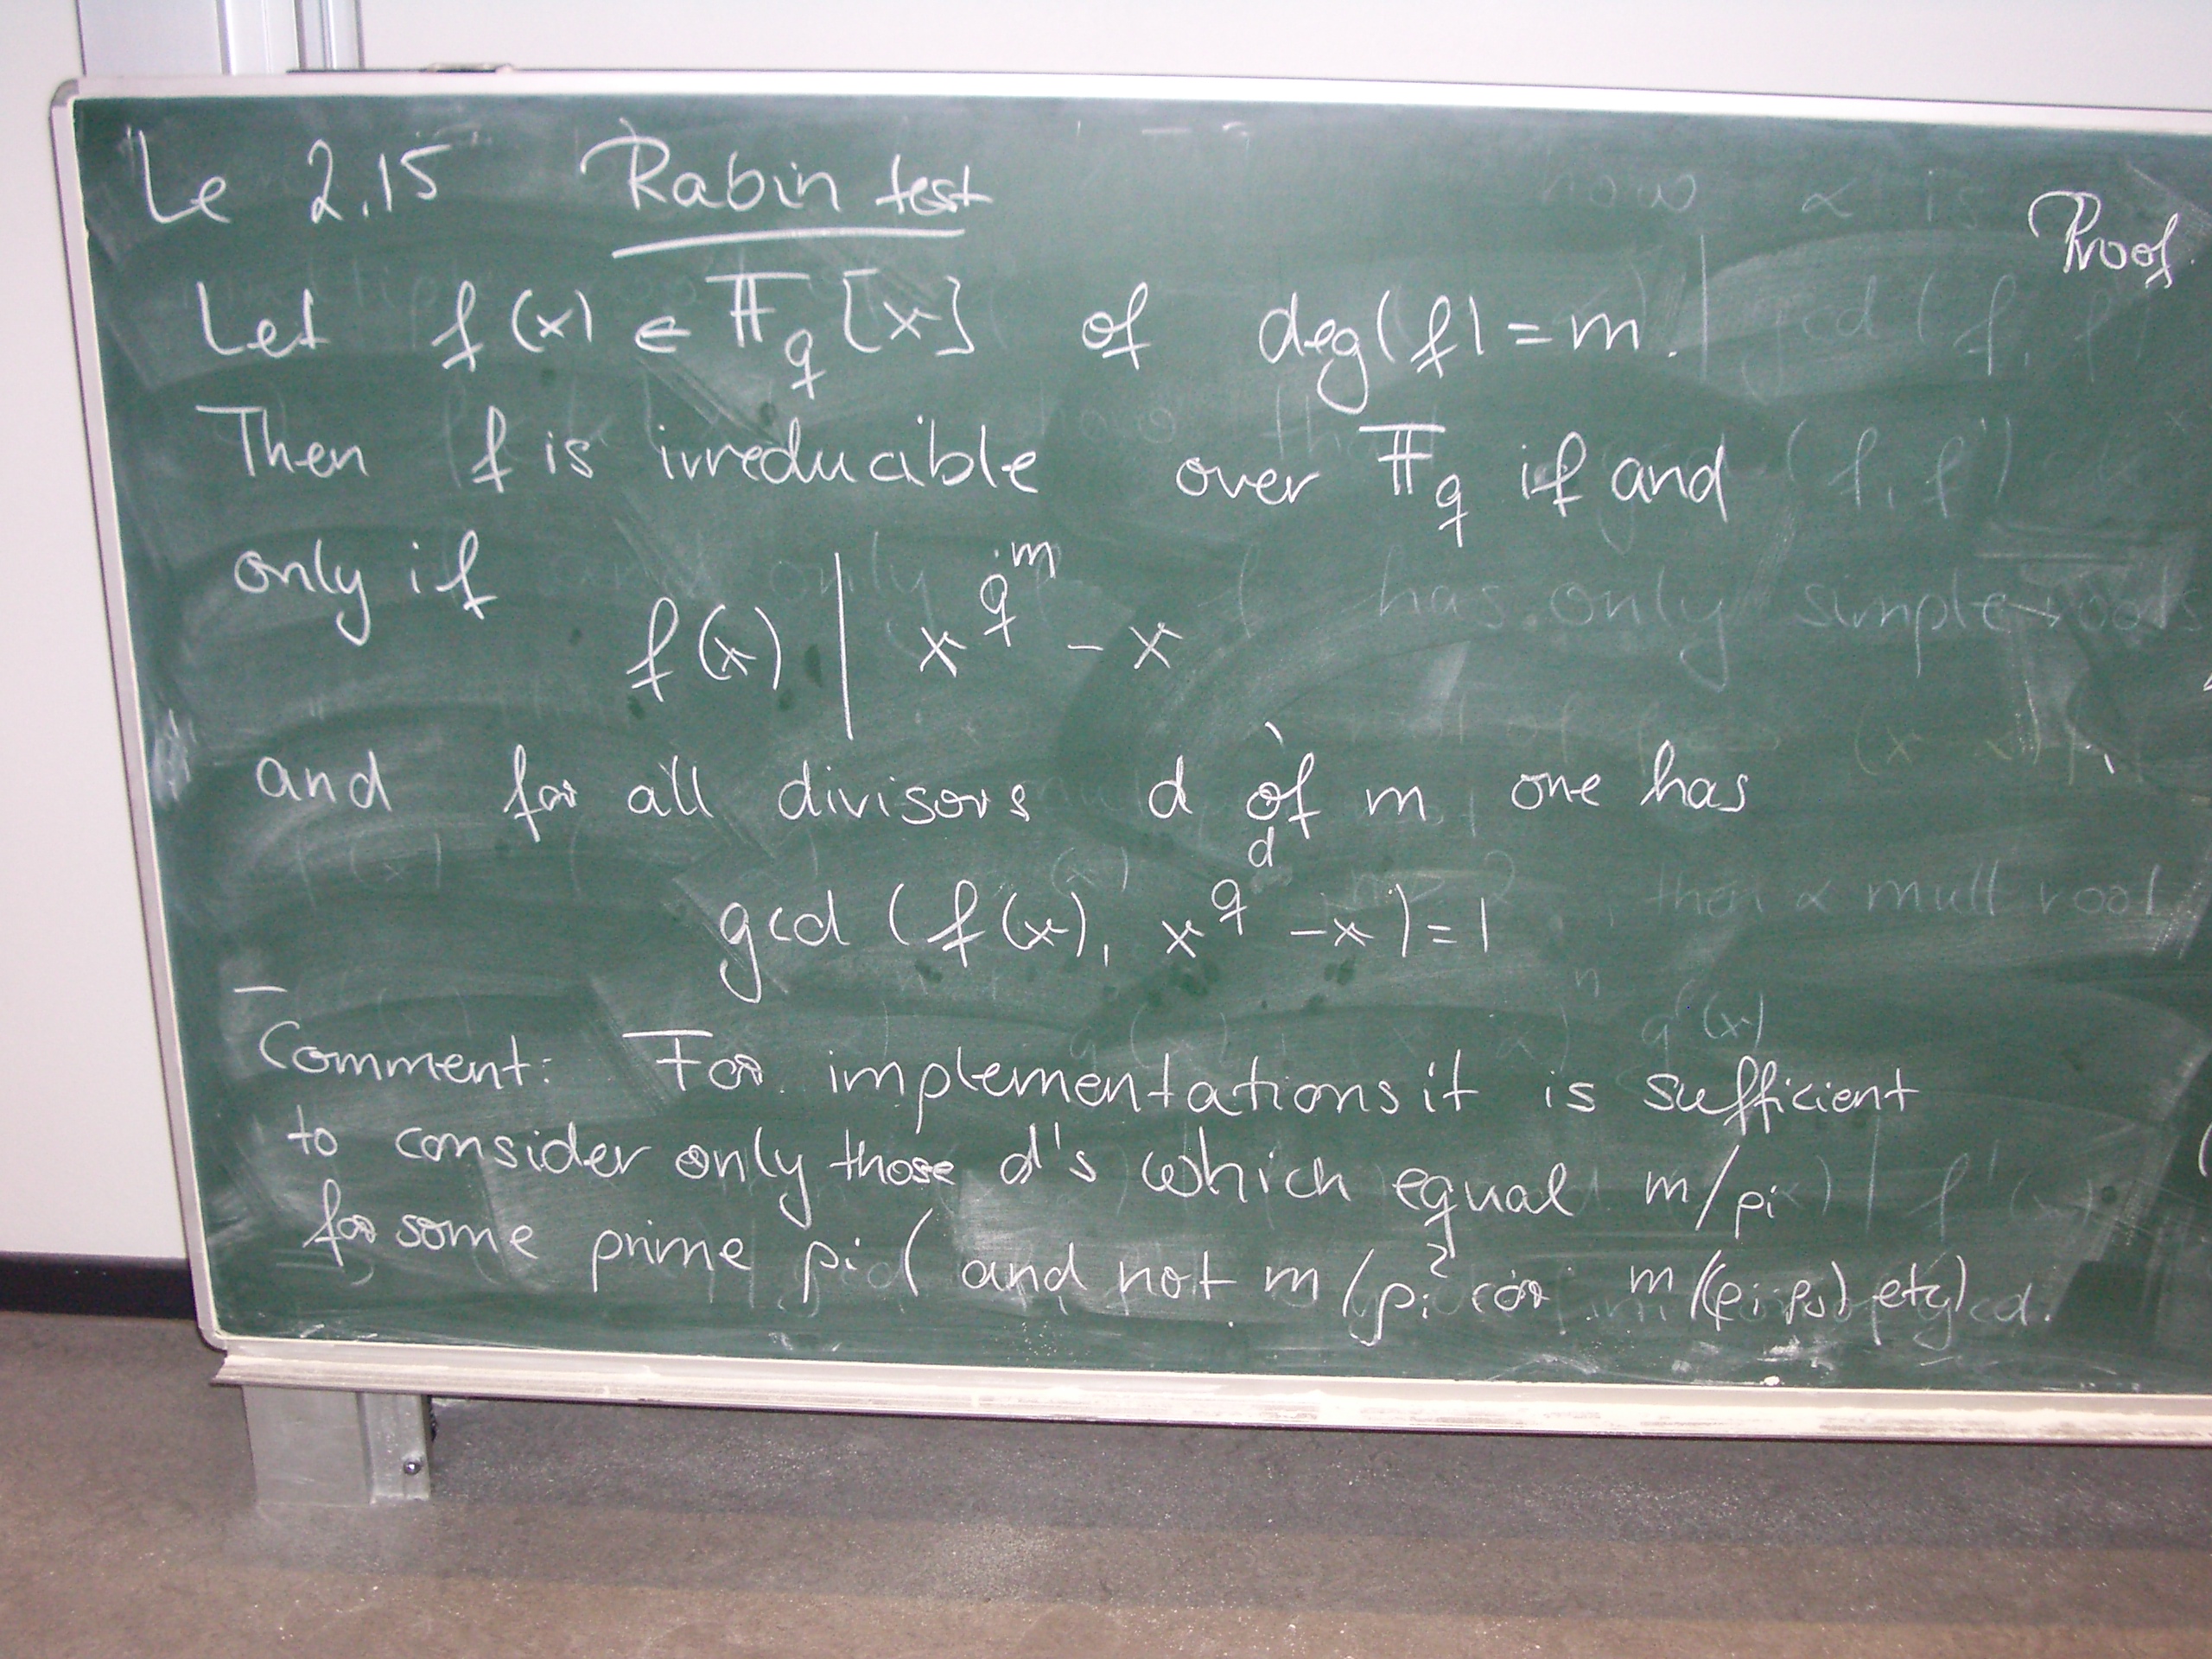 Le 2.15 Rabin test
Proof
Let f(x) ∈ 𝔽_q[x] of deg(f)=m.
Then f is irreducible over 𝔽_q if and
only if
f(x) | x^{q^m} - x
and for all divisors d of m, one has
gcd (f(x), x^{q^d} - x) = 1
Comment: For implementations it is sufficient
to consider only those d's which equal m/p_i
for some prime p_i (and not m/p_i^2 or m/(p_i p_j) etc)